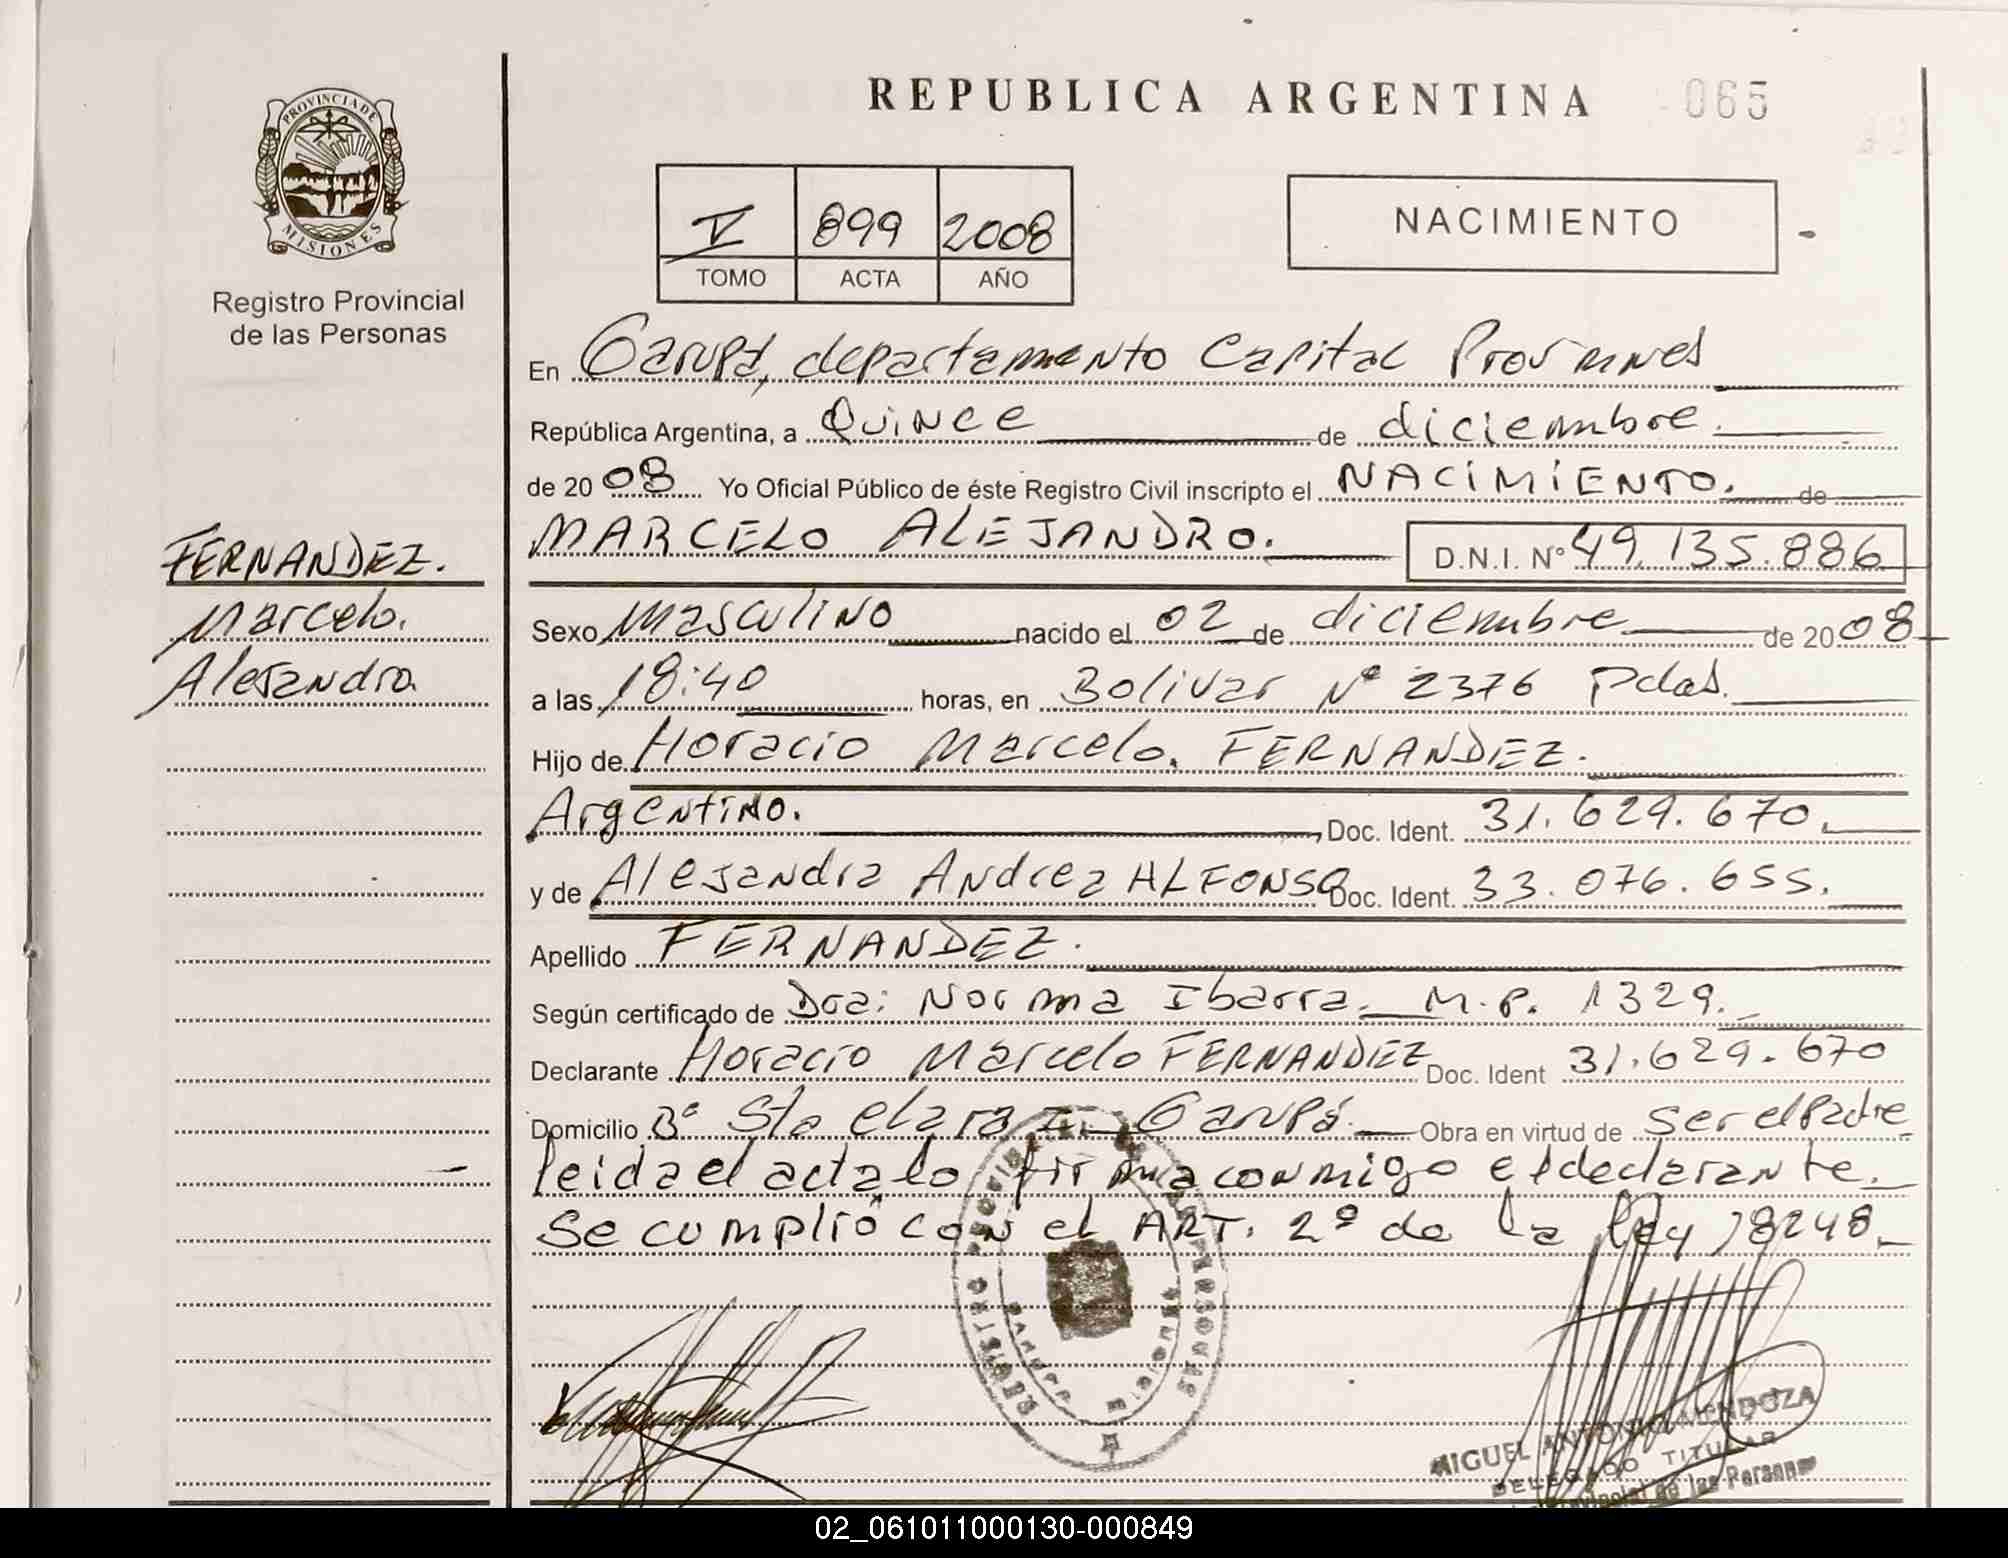 REPUBLICA ARGENTINA 065
PROVINCIA DE
MISIONES
Registro Provincial
de las Personas
V 899 2008
TOMO ACTA AÑO
NACIMIENTO
En Garupá, departamento Capital Prov mnes
República Argentina, a Quince de diciembre.
de 2008 Yo Oficial Público de éste Registro Civil inscripto el NACIMIENTO. de
MARCELO ALEJANDRO. D.N.I. Nº 49.135.886
FERNANDEZ.
Marcelo.
Alejandro
Sexo Masculino nacido el 02 de diciembre de 2008
a las 18:40 horas, en Bolivar Nº 2376 Pdas.
Hijo de Horacio Marcelo. FERNANDEZ.
Argentino. Doc. Ident. 31.629.670.
y de Alejandra Andrea ALFONSO Doc. Ident. 33.076.655.
Apellido FERNANDEZ.
Según certificado de Dra: Norma Ibarra. M.P. 1329.
Declarante Horacio Marcelo FERNANDEZ Doc. Ident 31.629.670
Domicilio Bº Sta Clara I Garupá. Obra en virtud de ser el Padre
leida el acta lo firma conmigo el declarante.
Se cumplió con el ART. 2º de la ley 18248.
REGISTRO PERSONAS
GARUPA MISIONES
MIGUEL ANTONIO MENDOZA
DELEGADO TITULAR
Provincial de las Personas
02_061011000130-000849